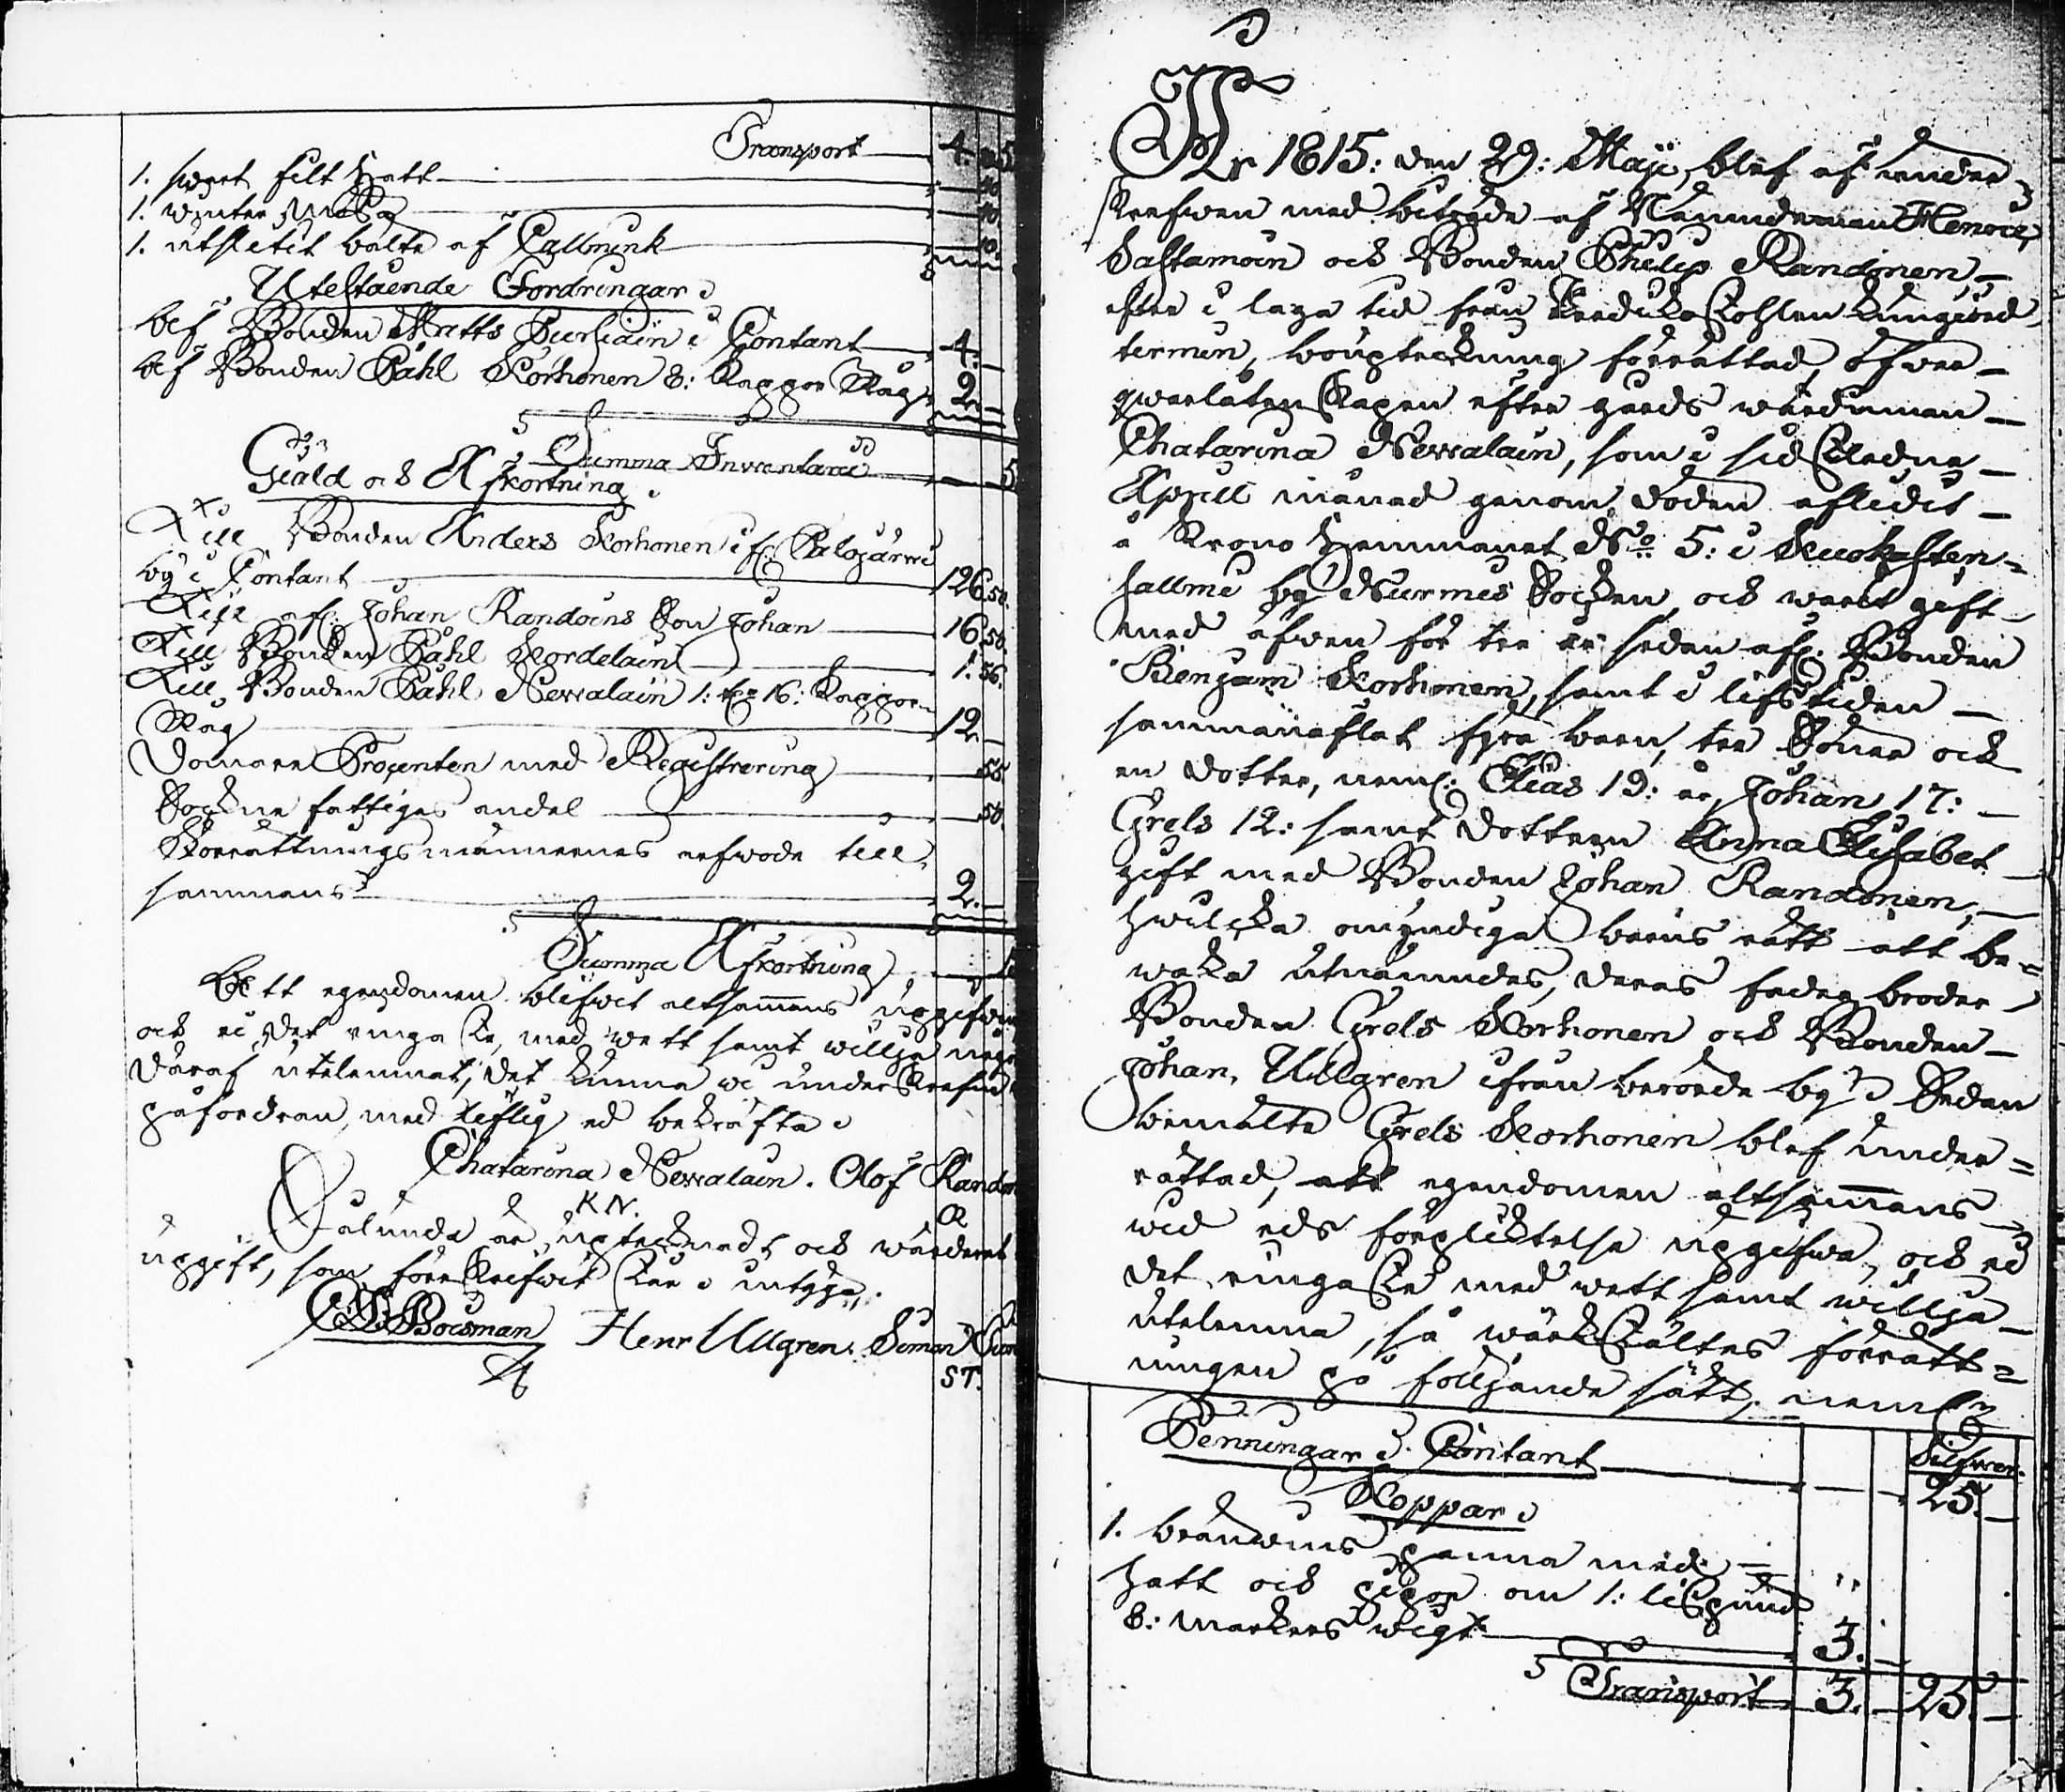 Transport 4.
1. swart filt hatt 10.
1. winter mössa 10.
1. utslitit bälte af Callmink 10.
Utestående Fordringar
Af Bonden Matts Turhain i Contant 4.
Af Bonden Påhl Korhonen 8: Kappor Råg 2.
Summa Inventarii 5
Gäld och Afkortning
Till Bonden Anders Korhonen i Palojärvi
by i Contant 126.50.
Till afl: Johan Randoins Son Johan 16.50.
Till Bonden Påhl Kordelain 1.56.
Till Bonden Påhl Nevalain 1: t:a 16: Kappor
Råg 12.
Domare Procenten med Registrering 55.
Sockne fattiges andel 50.
Förrättningsmännernes arfwode till-
sammans 2.
Summa Afkortning
Att egendomen blifwit altsammans uppgifwen
och ei det ringaste, med wett samt willja
däraf utelemnat, det kunna wi underskrefne
påfordran, med liflig ed bekräfta
Chatarina Nevalain. Olof Rando
K N. R
Sålunda är upptecknadt och wärderat
uppgift, som föreskrifwit står intyga.
Bocsman Henr Ullgren. Simon
ST.
År 1815: den 29: Maji, blef af under-
skrefwen med biträde af Nämndeman Henric
Sastamoin och Bonden Philip Randonen,
efter i laga tid från Predikostohlen kungiord
termin, bouptekning förrättad öfwer
qwarlåtenskapen efter gårds wärdinnan
Chatarina Nevalain, som i sidstledne
April månad genom döden aflidit
å Krono Hemmanet No 5: i Kuohasten-
sallmi by Nurmis Socken, och warit gift
med äfwen för tre år sedan afl: Bonden
Benjam Korhonen, samt i lifstiden
sammanaflat fyra barn, tre Söner och
en Dotter, neml: Elias 19: år, Johan 17:
Grels 12: samt Dottern Anna Elisabet
gift med Bonden Johan Randonen,
hwilcka omyndiga barns rätt att be-
waka utnämndes, deras fader broder
Bonden Grels Korhonen och Bonden
Johan Ullgren ifrån berörde by. Sedan
bemälte Grels Korhonen blef under-
rättad, att egendomen altsammans
wid eds förpliktelse uppgifwa, och ei
det ringaste med wett samt willja
utelemna, så wärkstältes förrätt-
ningen på följande sätt, neml:
Penningar i Contant Silfwer 25.
Koppar
1. bränwins panna med
hatt och pipor om 1: lispund
8: markers wigt 3.
Transport 3. 25.